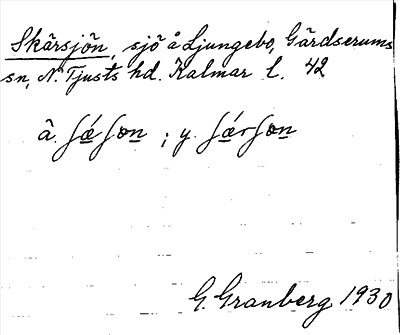 Skärsjön, sjö å Ljungebo, Gärdserums
sn, N. Tjusts hd. Kalmar l. 42
ä. ʃǽʃon ; y. ʃǽrʃon
G. Granberg 1930